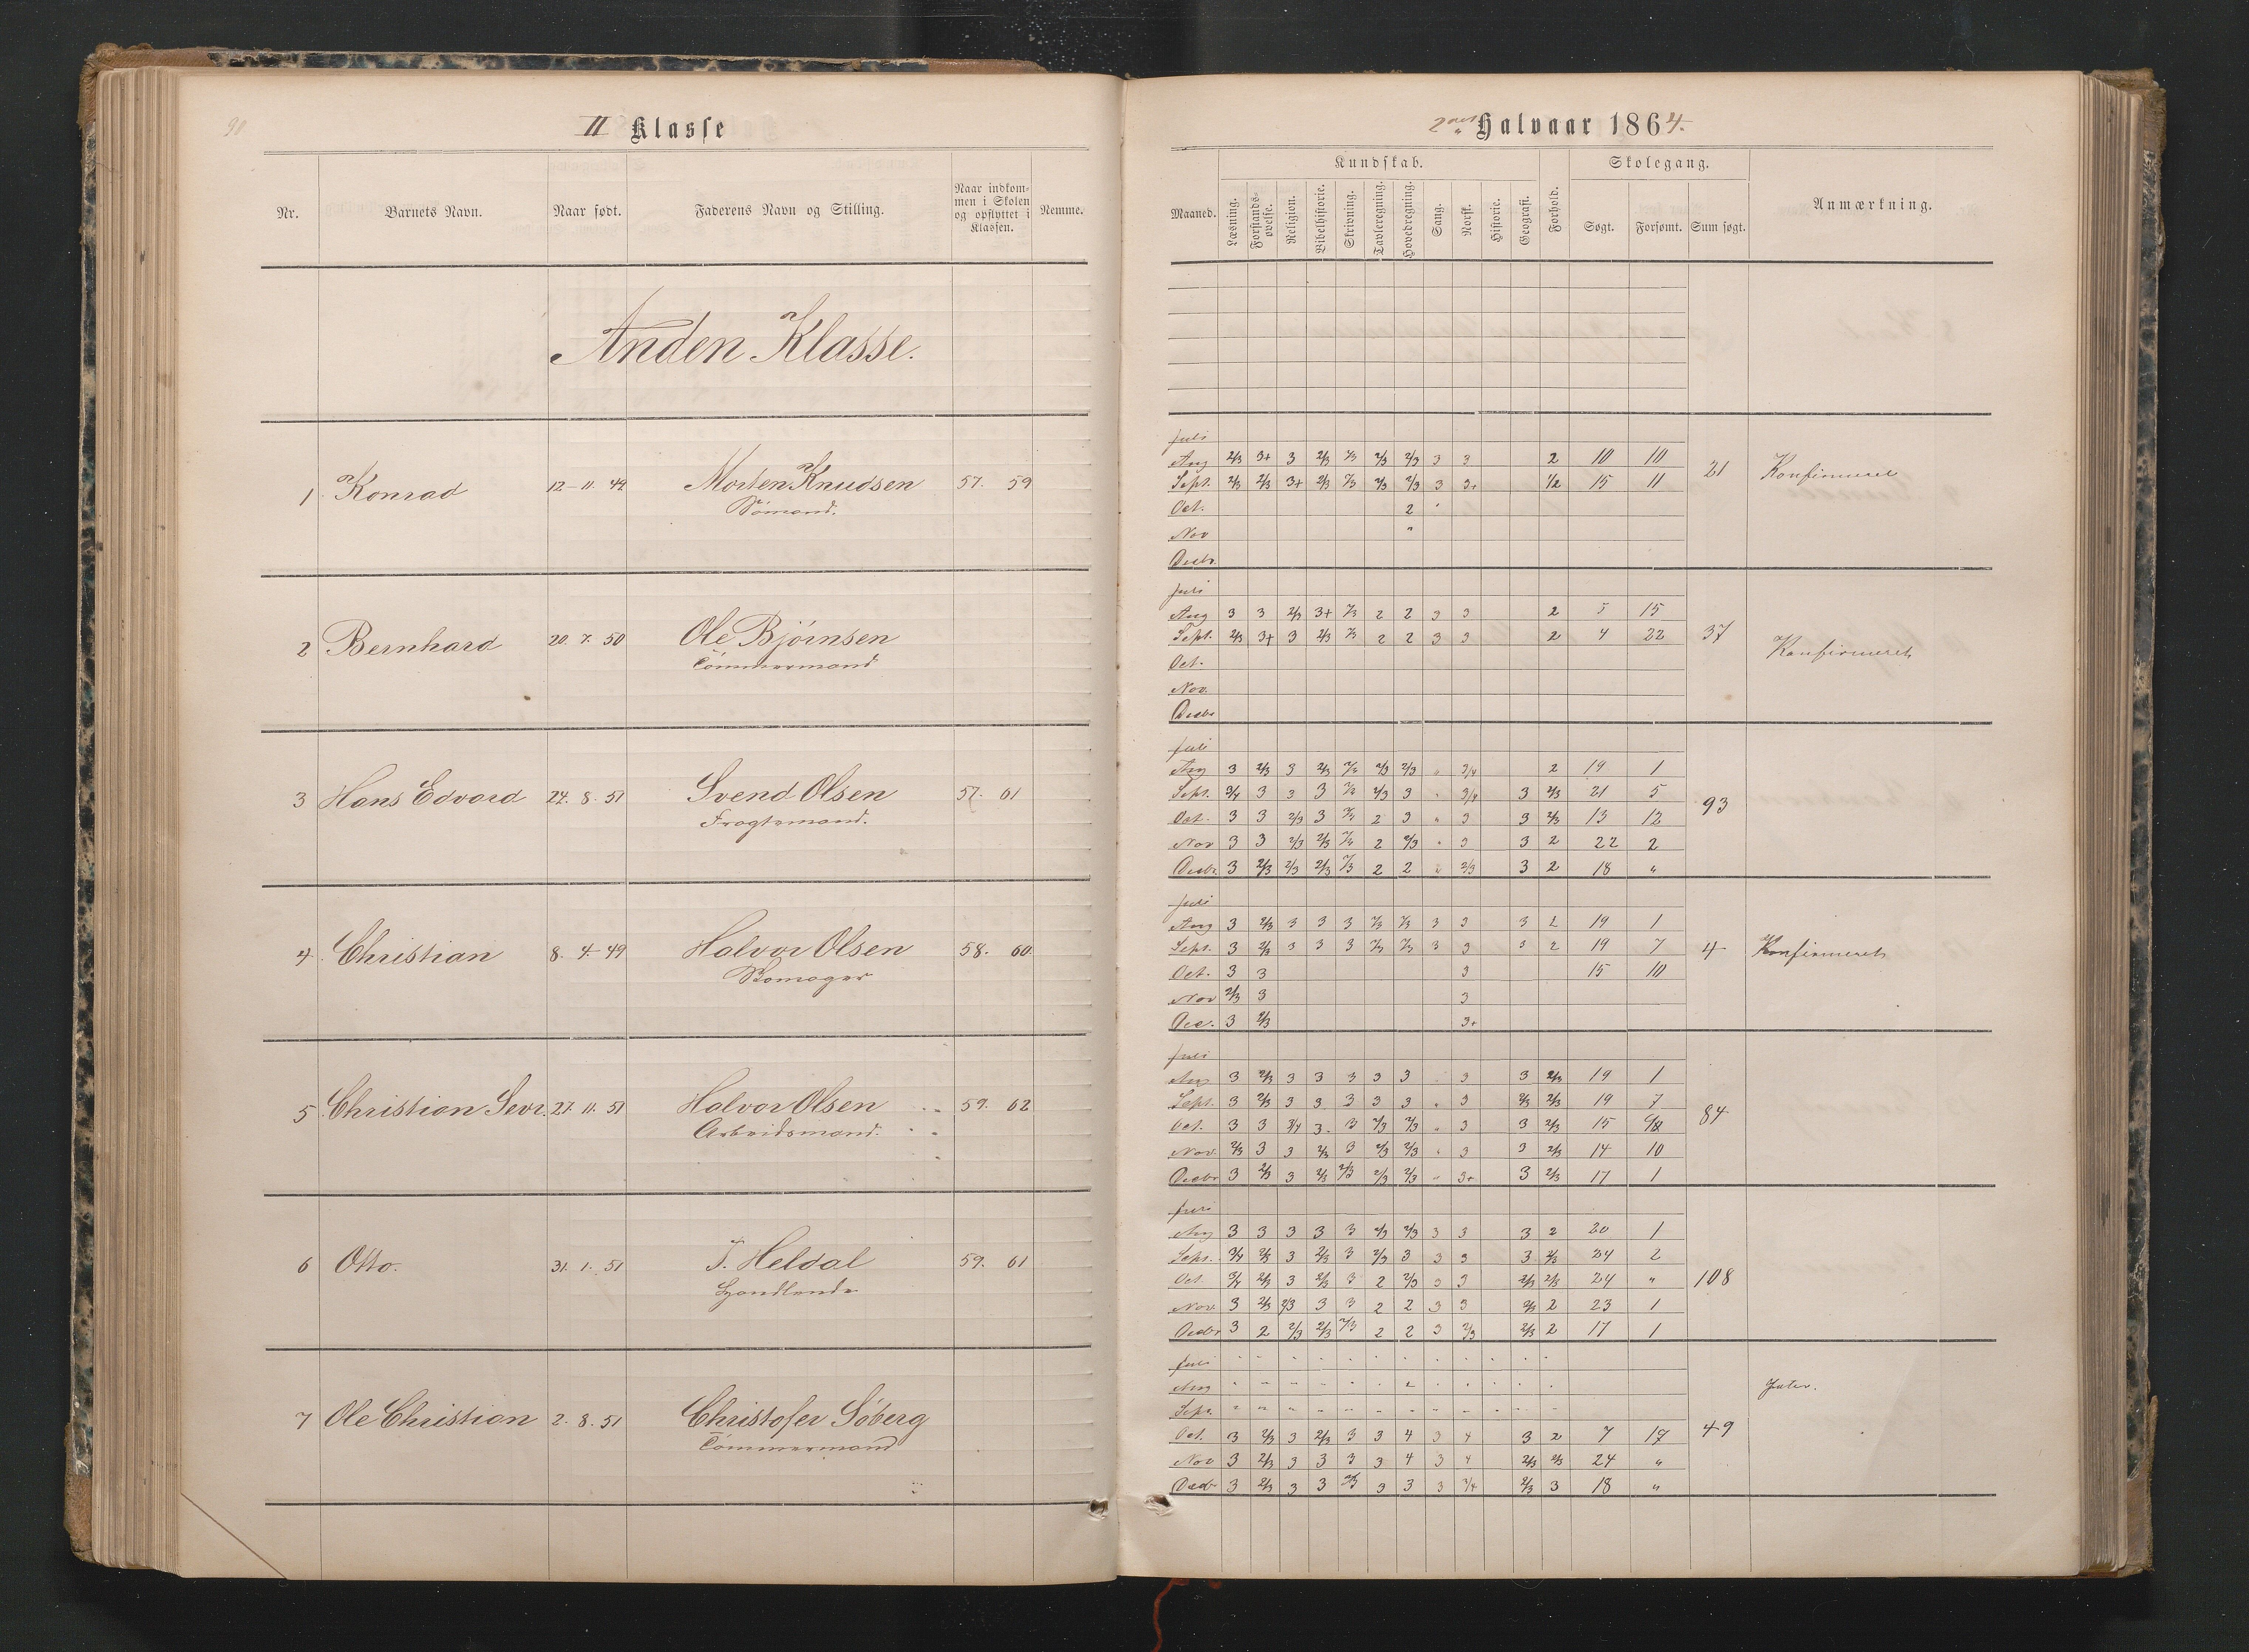 90
II Klasse
Nr. Barnets Navn. Naar født. Faderens Navn og Stilling. Naar indkom- men i Skolen og opflyttet i Klassen. Nemme.
Anden Klasse.
1 Konrad 12-11.49 Morten Knudsen 57. 59
Sømand.
2 Bernhard 20.7.50 Ole Bjørnsen
Tömmermand
3 Hans Edvard 24.8.51 Svend Olsen 57. 61
Fragtemand.
4. Christian 8.4.49 Halvor Olsen 58. 60.
Skomager
5 Christian Sevr. 27.11.51 Halvor Olsen 59. 62
Arbeidsmand.
6 Otto. 31.1.51 J. Heldal 59. 61
Handlende
7 Ole Christian 2.8.51 Christofer Söberg
Tömmermand
2det Halvaar 1864.
Kundskab. Skolegang.
Maaned. Læsning. Forstands- øvelse. Religion. Bibelhistorie. Skrivning. Tavleregning. Hovedregning. Sang. Norsk. Historie. Geografi. Forhold. Søgt. Forsømt. Sum søgt. Anmærkning.
Juli
Aug 2/3 3+ 3 2/3 2/3 2/3 3 3 2 10 10
Sept. 2/3 2/3 3+ 2/3 2/3 2/3 3 3+ 1/2 15 11 21 Konfirmeret
Oct. 2
Nov "
Decbr.
Juli
Aug 3 3 2/3 3+ 2 2 3 3 2 5 15
Sept. 2/3 3+ 3 2/3 2 2 3 3 2 4 22 37 Konfirmeret
Oct.
Nov.
Decbr
Juli
Aug 3 2/3 3 2/3 2/3 2/3 " 3/4 2 19 1
Sept. 3/4 3 3 3 2/3 3 " 3/4 3 2/3 21 5 93
Oct. 3 3 2/3 3 2 3 " 3 3 2/3 13 12
Nov 3 3 2/3 2/3 2 2/3 " 3 3 2 22 2
Decbr. 3 2/3 2/3 2/3 2 2 " 2/3 3 2 18 "
Juli
Aug 3 2/3 3 3 3 3 3 3 2 19 1
Sept. 3 2/3 3 3 3 3 3 3 2 19 7 4 Konfirmeret
Oct. 3 3 3 15 10
Nov 2/3 3 3
Dec. 3 2/3 3+
Juli
Aug 3 2/3 3 3 3 3 3 " 3 3 2/3 19 1
Sept. 3 2/3 3 3 3 3 3 " 3 2/3 2/3 19 7 84
Oct. 3 3 3/4 3 3 2/3 2/3 " 3 3 2/3 15
Nov. 2/3 3 3 2/3 3 2/3 2/3 " 3 3 2/3 14 10
Decbr 3 2/3 3 2/3 2/3 2/3 2/3 " 3+ 3 2/3 17 1
Juli
Aug 3 3 3 3 3 2/3 2/3 3 3 3 2 20 1
Sept. 3/4 2/3 3 2/3 3 2/3 3 3 3 3 2/3 24 2
Oct. 3/4 2/3 3 2/3 3 2 2/3 3 3 2/3 2/3 24 " 108
Nov. 3 2/3 2/3 3 3 2 2 3 3 2/3 2 23 1
Decbr 3 2 2/3 2/3 2/3 2 2 3 2/3 2/3 2 17 1
Juli
Aug
Sept.
Oct. 3 2/3 3 2/3 3 3 4 3 4 3 2 7 17 49
Nov 3 2/3 3 3 3 3 4 3 4 2/3 2/3 24 "
Decbr 3 2/3 3 3 2/3 3 3 3 3/4 2/3 3 18 "